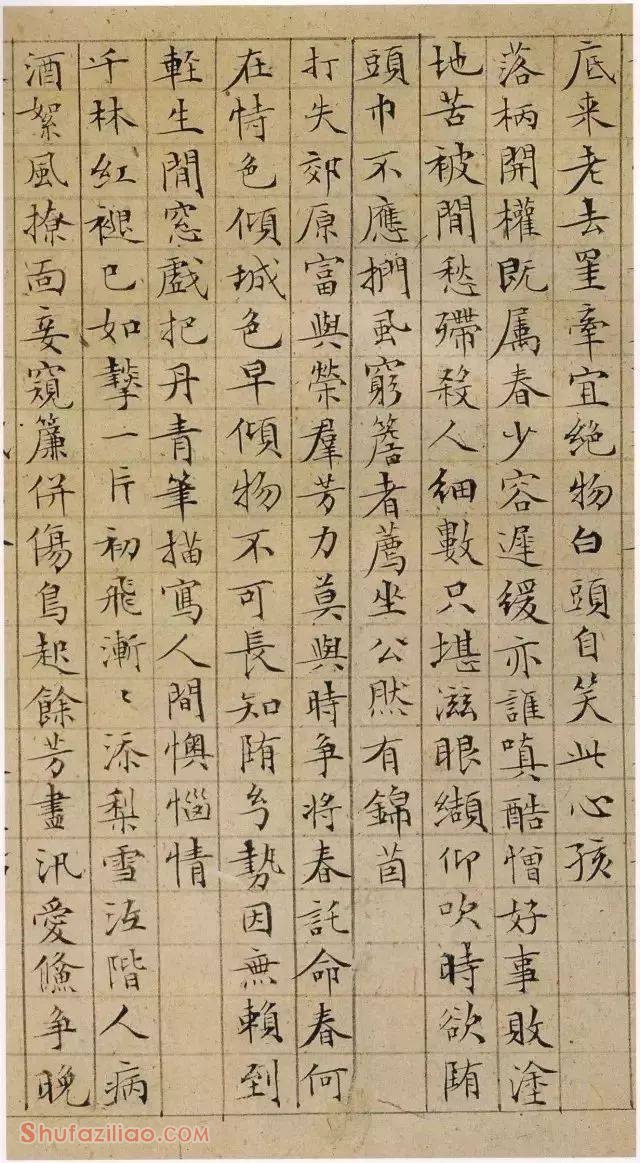 底来老去罣牽宜絕物白頭自笑此心孩
落柄開權既属春少容遲緩亦誰嗔酷憎好事敗塗
地苦被閒愁殢殺人細數只堪滋眼纈仰吹時欲陏
頭巾不應捫風窮簷者薦坐公然有錦茵
打失郊原富與榮羣芳力莫與時争將春託命春何
在恃色傾城色早傾物不可長知陏幻勢因無賴到
輕生閒窓戲把丹青筆描寫人間懊惱情
千林紅褪已如一片初飛漸〻添梨雪沍階人病
酒絮風撩面妾窺簾併傷鳥起餘芳盡汎愛鯈争晚
Shufaziliao.com